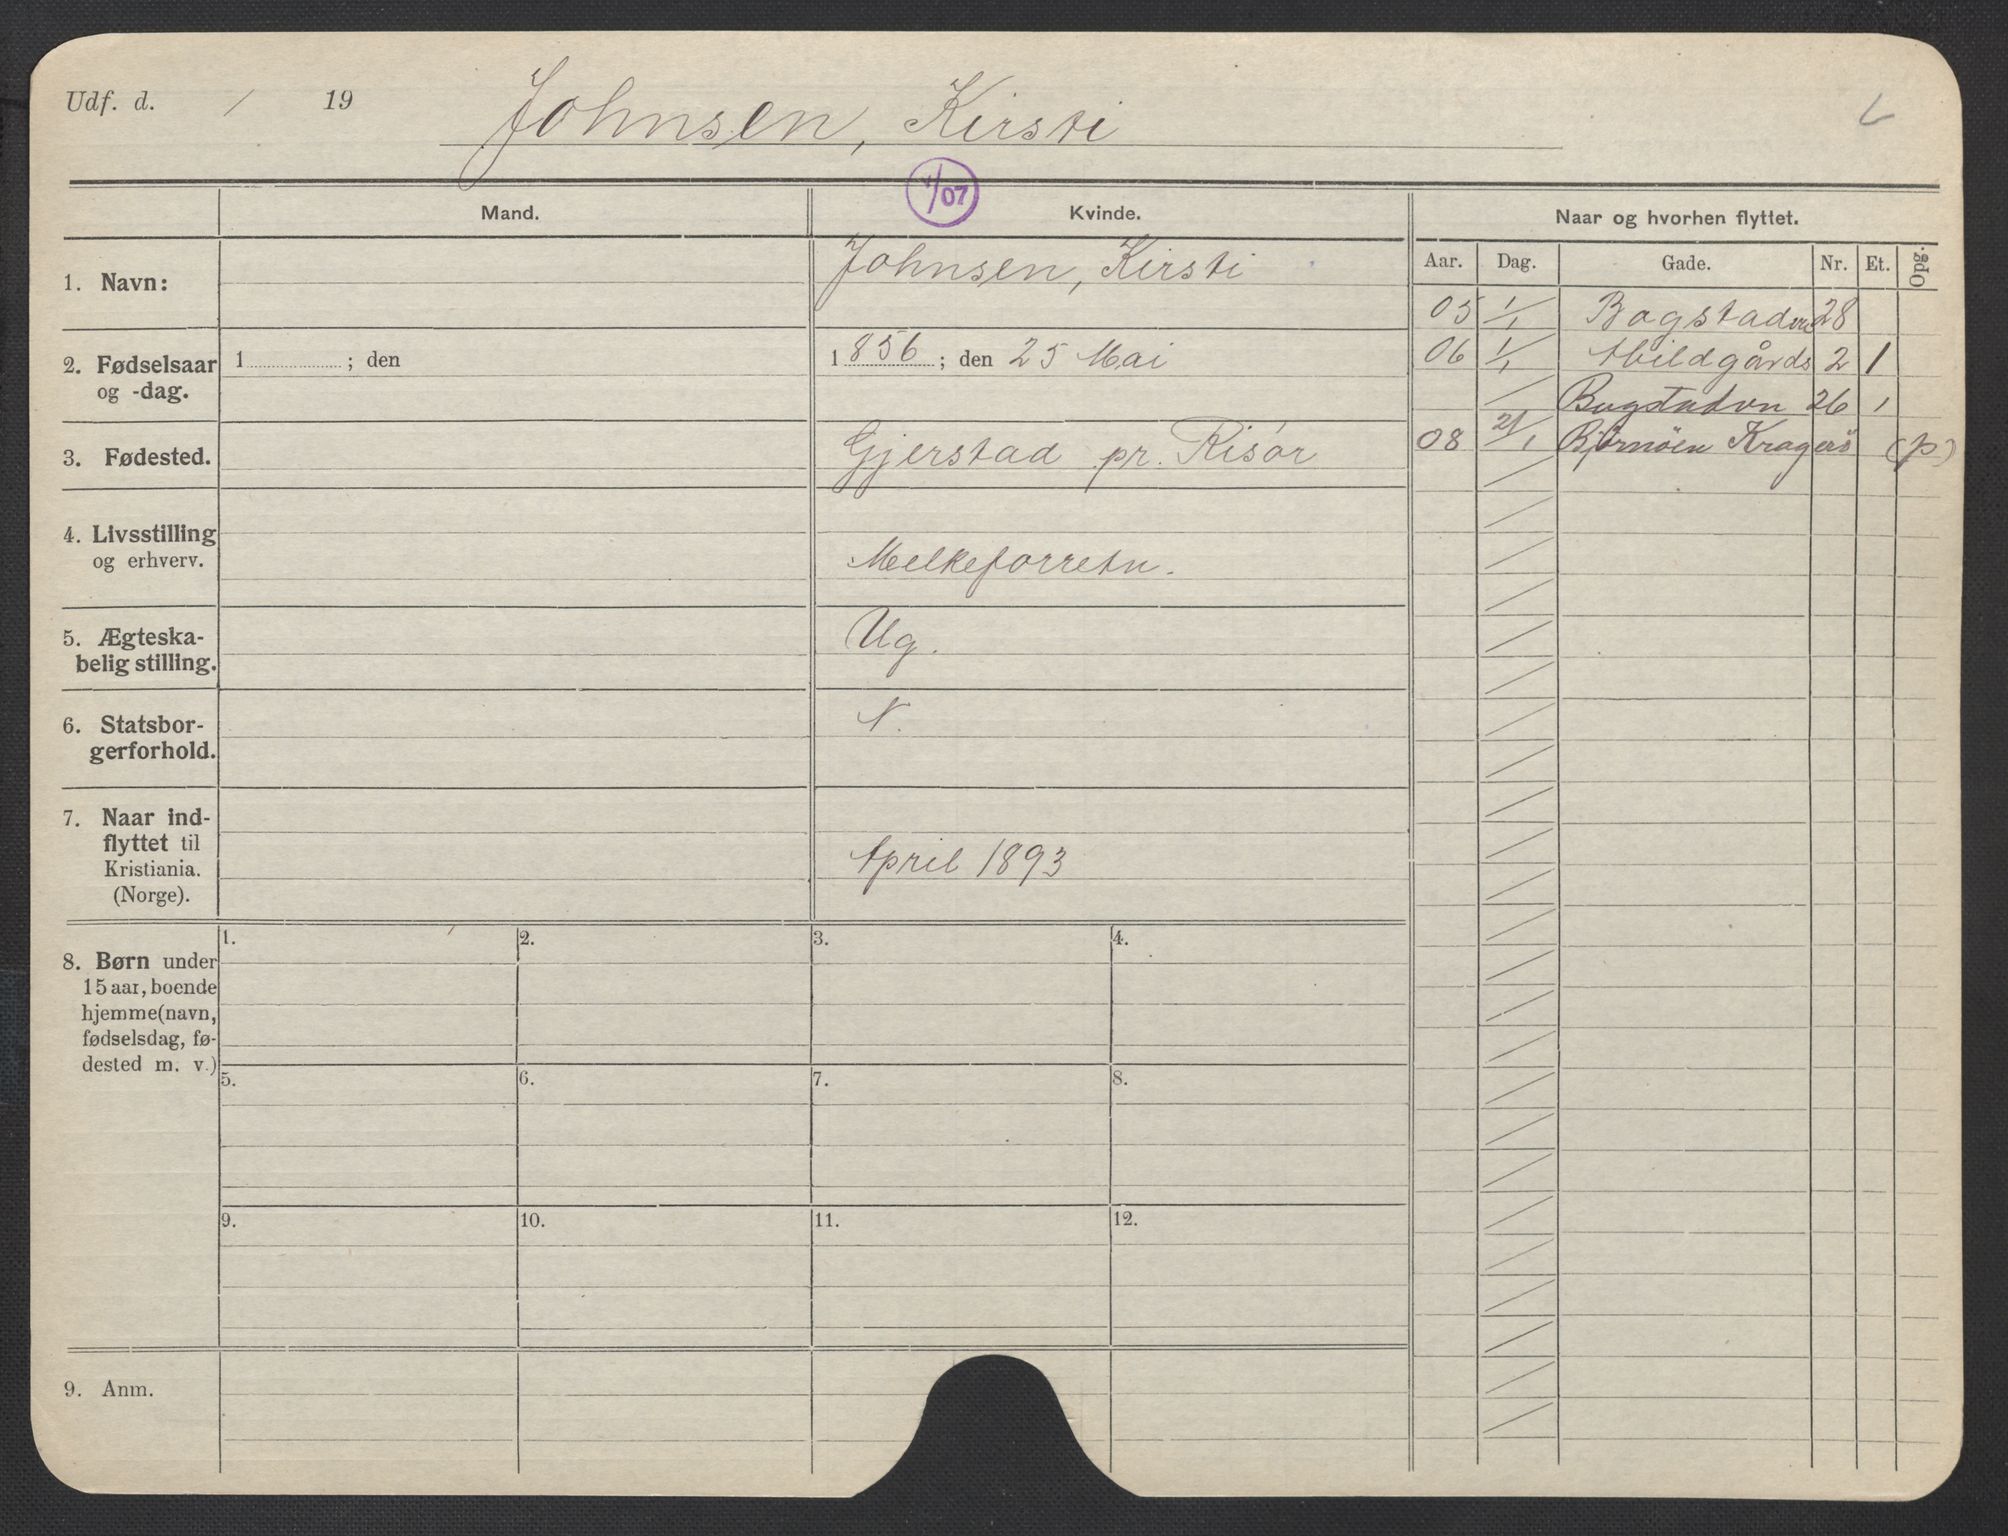 Udf. d. / 19
Johnsen, Kirsti
1/07
Mand.
Kvinde.
Naar og hvorhen flyttet.
Aar. Dag. Gade. Nr. Et. Opg.
1. Navn:
Johnsen, Kirsti
05 1/1 Bogstadvn 28
2. Fødselsaar
og -dag.
1 ; den
1856; den 25 Mai
06 1/1 Abildgårds 2 1
/ Bogstadvn 26 1
3. Fødested.
Gjerstad pr. Risør
08 21/1 Bjørnöen Kragerö (p)
4. Livsstilling
og erhverv.
Melkeforretn.
5. Ægteska-
belig stilling.
Ug.
6. Statsbor-
gerforhold.
N.
7. Naar ind-
flyttet til
Kristiania.
(Norge).
April 1893
8. Børn under
15 aar, boende
hjemme (navn,
fødselsdag, fø-
dested m. v.)
1. 2. 3. 4.
5. 6. 7. 8.
9. 10. 11. 12.
9. Anm.